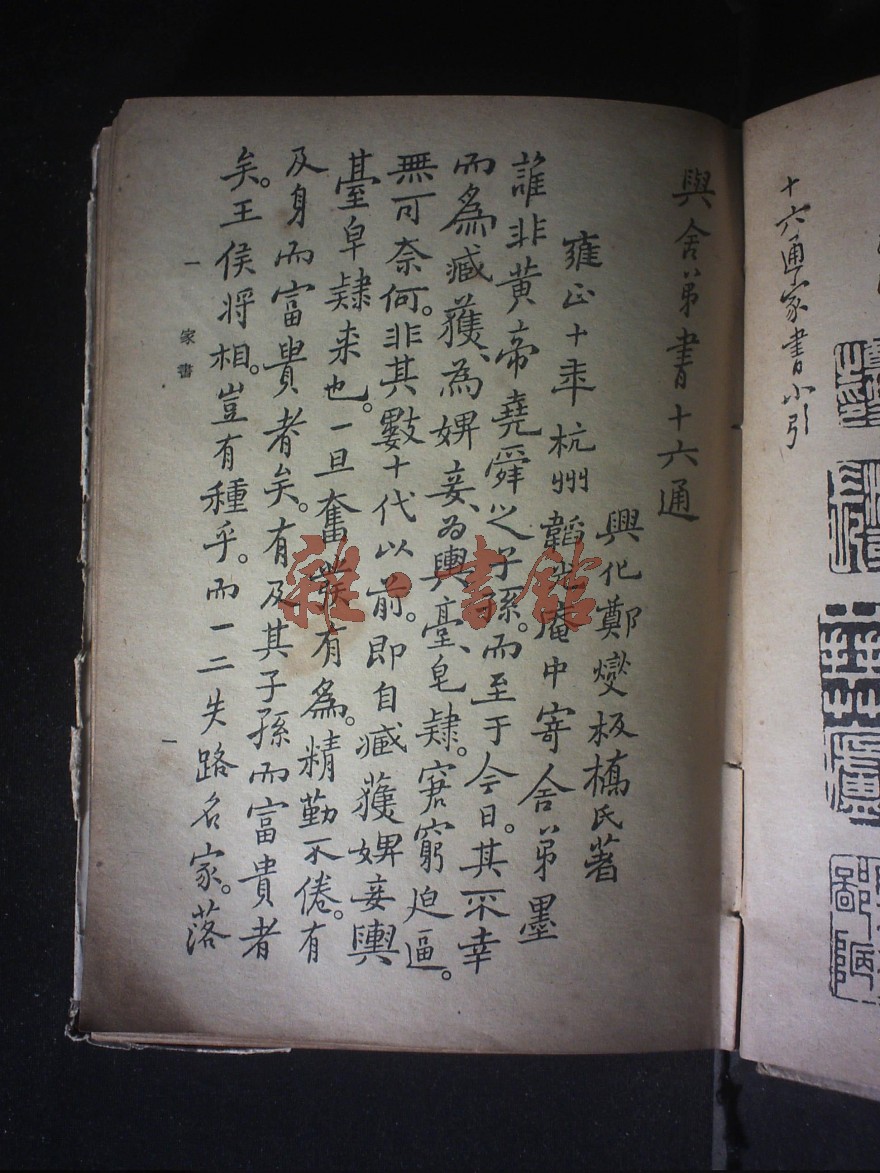 十六通家書小引
與舍弟書十六通
興化鄭燮板橋氏著
雍正十年杭州韜光庵中寄舍弟墨
誰非黃帝堯舜之子孫。而至于今日。其不幸
而為臧獲、為婢妾、為輿臺、皂隸。窘窮迫逼。
無可奈何。非其數十代以前。即自臧獲婢妾輿
臺皁隸来也。一旦奮發有為。精勤不倦。有
及身而富貴者矣。有及其子孫而富貴者
矣。王侯将相。豈有種乎。而一二失路名家。落
一
家書
一
雜·書館